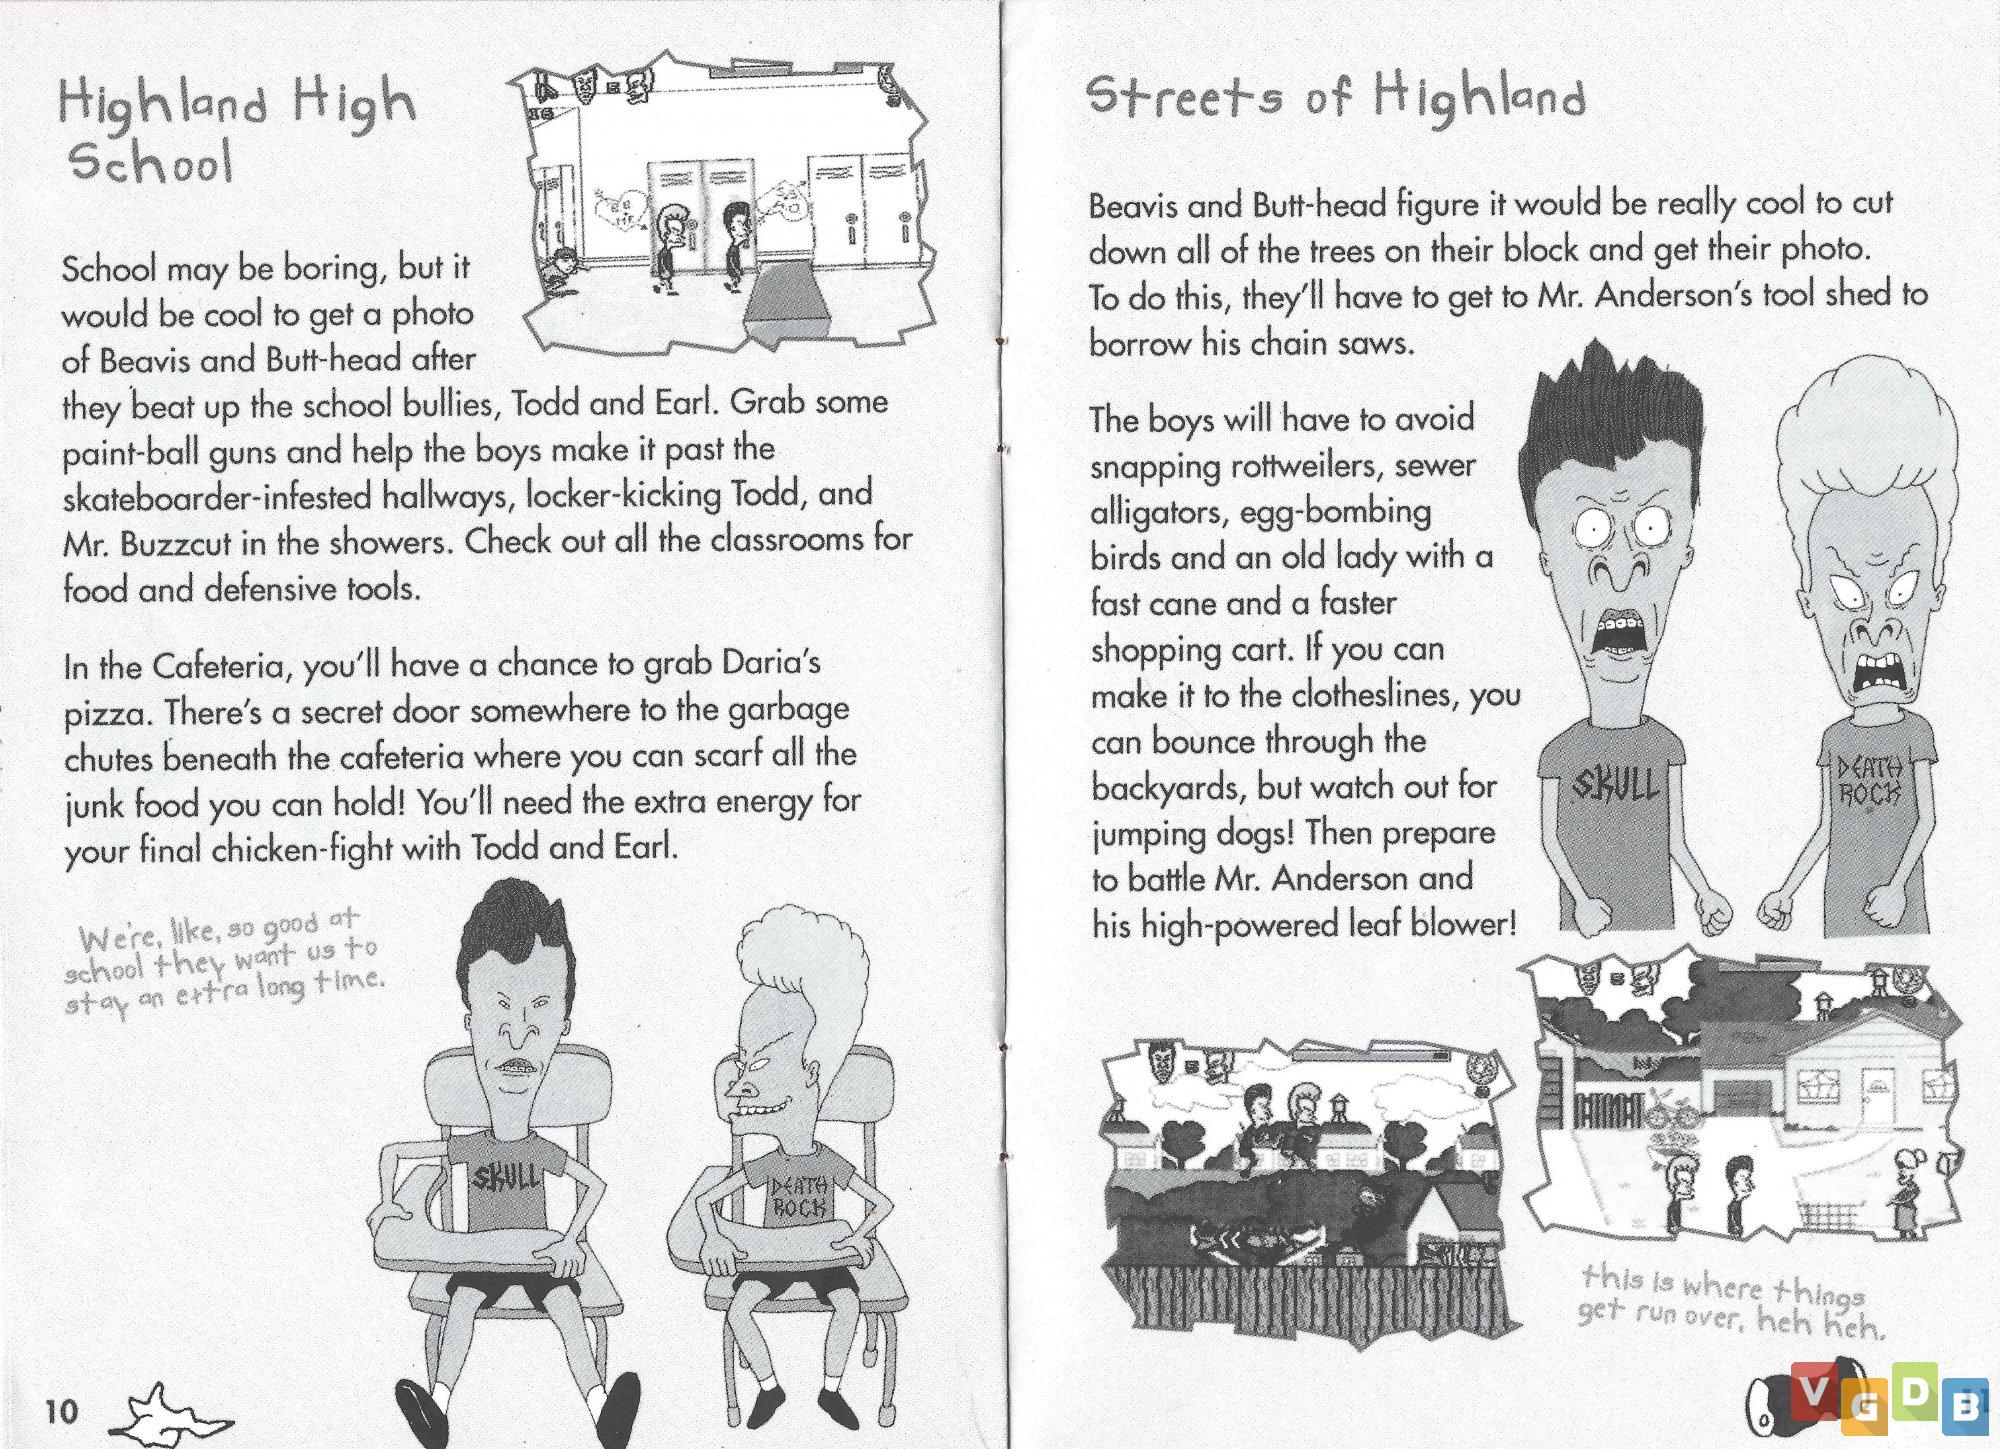 Highland High
School
School may be boring, but it
would be cool to get a photo
of Beavis and Butt-head after
they beat up the school bullies, Todd and Earl. Grab some
paint-ball guns and help the boys make it past the
skateboarder-infested hallways, locker-kicking Todd, and
Mr. Buzzcut in the showers. Check out all the classrooms for
food and defensive tools.
In the Cafeteria, you'll have a chance to grab Daria's
pizza. There's a secret door somewhere to the garbage
chutes beneath the cafeteria where you can scarf all the
junk food you can hold! You'll need the extra energy for
your final chicken-fight with Todd and Earl.
We're, like, so good at
school they want us to
stay an extra long time.
SKULL
DEATH
ROCK
10
Streets of Highland
Beavis and Butt-head figure it would be really cool to cut
down all of the trees on their block and get their photo.
To do this, they'll have to get to Mr. Anderson's tool shed to
borrow his chain saws.
The boys will have to avoid
snapping rottweilers, sewer
alligators, egg-bombing
birds and an old lady with a
fast cane and a faster
shopping cart. If you can
make it to the clotheslines, you
can bounce through the
backyards, but watch out for
jumping dogs! Then prepare
to battle Mr. Anderson and
his high-powered leaf blower!
SKULL
DEATH
ROCK
this is where things
get run over, heh heh.
VGDB